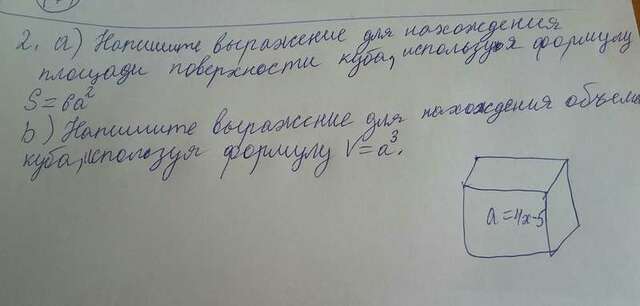 2. a) Напишите выражение для нахождения
площади поверхности куба, используя формулу
S=6a²
b) Напишите выражение для нахождения объема
куба, используя формулу V=a³.
a=4x-5